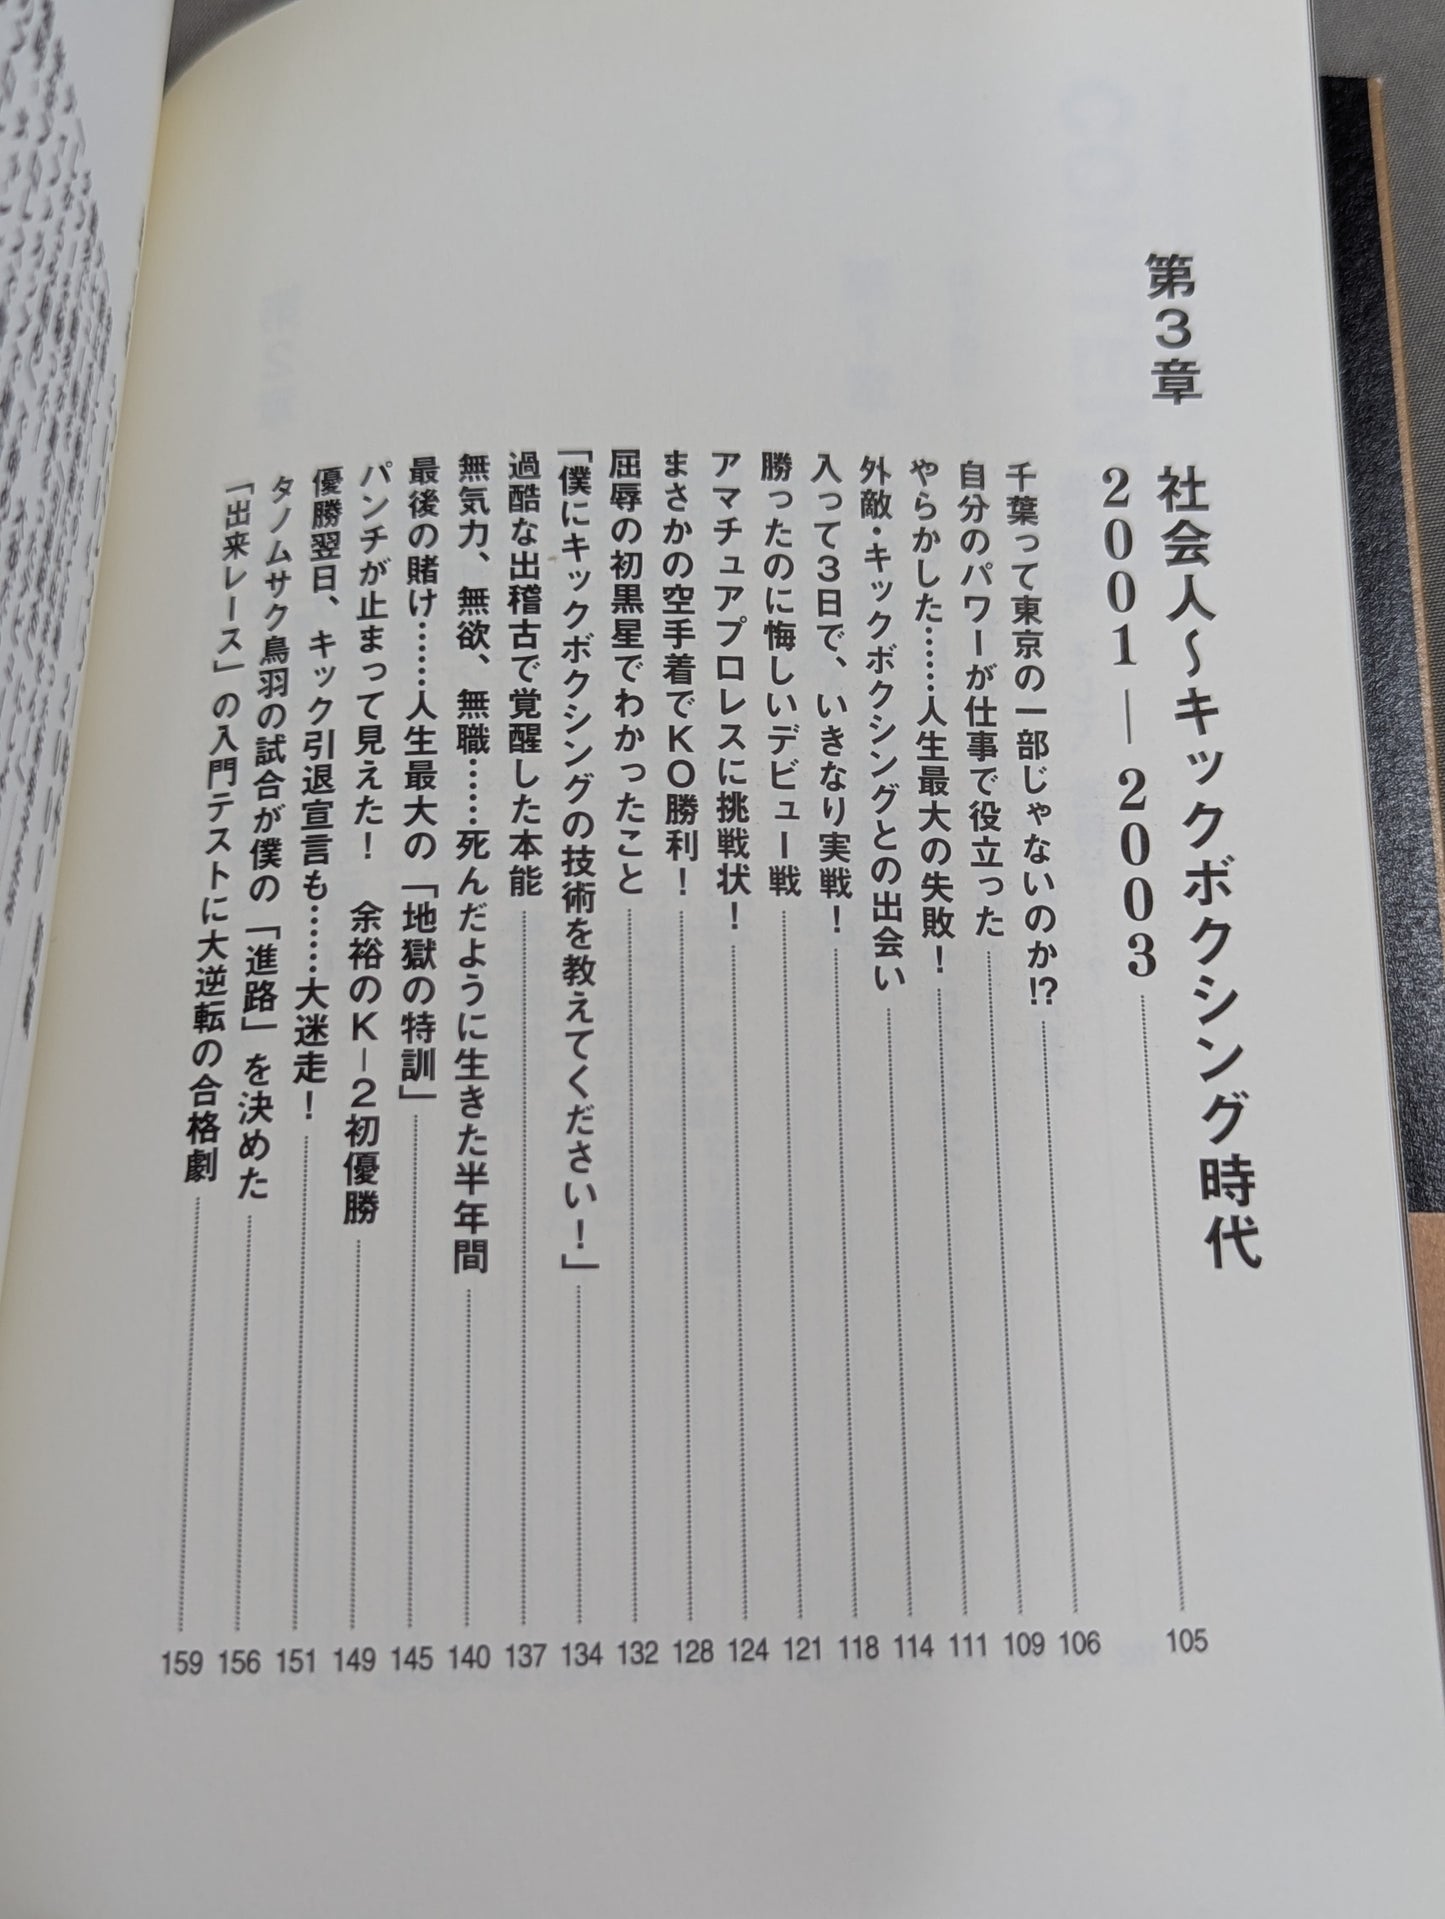 第3章　社会人〜キックボクシング時代
2001―2003 105
千葉って東京の一部じゃないのか!? 106
自分のパワーが仕事で役立った 109
やらかした……人生最大の失敗！ 111
外敵・キックボクシングとの出会い 114
入って3日で、いきなり実戦！ 118
勝ったのに悔しいデビュー戦 121
アマチュアプロレスに挑戦状！ 124
まさかの空手着でKO勝利！ 128
屈辱の初黒星でわかったこと 132
「僕にキックボクシングの技術を教えてください！」 134
過酷な出稽古で覚醒した本能 137
無気力、無欲、無職……死んだように生きた半年間 140
最後の賭け……人生最大の「地獄の特訓」 145
パンチが止まって見えた！　余裕のK−2初優勝 149
優勝翌日、キック引退宣言も……大迷走！ 151
タノムサク鳥羽の試合が僕の「進路」を決めた 156
「出来レース」の入門テストに大逆転の合格劇 159